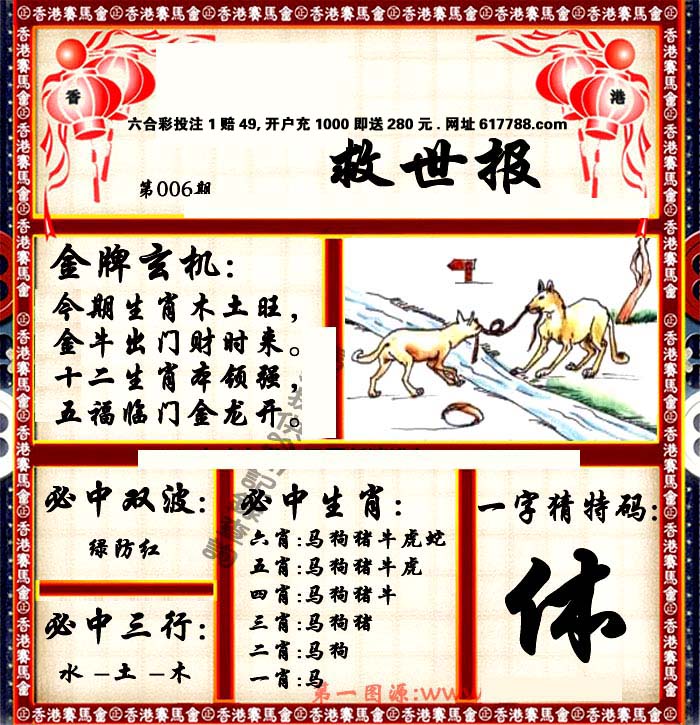 香港賽馬會㊣香港賽馬會㊣香港賽馬會㊣香港賽馬會㊣香港賽馬會㊣香港賽馬會㊣香港賽馬會
香
港
六合彩投注1赔49,开户充1000即送280元.网址617788.com
救世报
第006期
金牌玄机:
今期生肖木土旺,
金牛出门财时来。
十二生肖本领强,
五福临门金龙开。
必中双波:
绿防红
必中三行:
水－土－木
必中生肖:
六肖:马狗猪牛虎蛇
五肖:马狗猪牛虎
四肖:马狗猪牛
三肖:马狗猪
二肖:马狗
一肖:马
一字猜特码:
体
第一图源:www